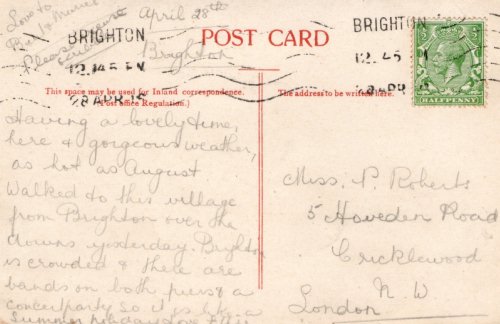 Love to
Pier & Minnie
Please
April 28th
Brighton
BRIGHTON
12.145 PM
28 APR 15
POST CARD
BRIGHTON
12. 45 
28 APR 
HALFPENNY
This space may be used for Inland correspondence.
(Post office Regulation.)
The address to be written here.
Having a lovely time,
here & gorgeous weather,
as hot as August
Walked to this village
from Brighton over the
downs yesterday. Brighton
is crowded & there are
bands on both piers & a
concert party so it is like a
Summer holiday Love
Miss. P. Roberts
5 Hoveden Road
Cricklewood
N. W
London